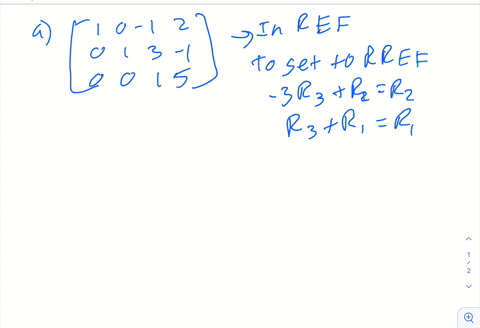 a) [1 0 -1 2
0 1 3 -1
0 0 1 5]
→ In REF
to get to RREF
-3R₃ + R₂ = R₂
R₃ + R₁ = R₁
1
/
2